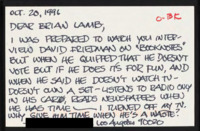 OCT. 20, 1996
C-BK
DEAR BRIAN LAMB,
I WAS PREPARED TO WATCH YOU INTER-
VIEW DAVID FRIEDMAN ON "BOOKNOTES"
BUT WHEN HE QUIPPED THAT HE DOESN'T
VOTE BUT IF HE DOES IT'S FOR FUN, AND
WHEN HE SAID HE DOESN'T WATCH TV -
DOESN'T OWN A SET - LISTENS TO RADIO ONLY
IN HIS CAR, READS NEWSPAPERS WHEN
HE HAS TIME — I TURNED OFF MY TV.
WHY GIVE HIM TIME WHEN HE'S A WASTE?
Los Angeles